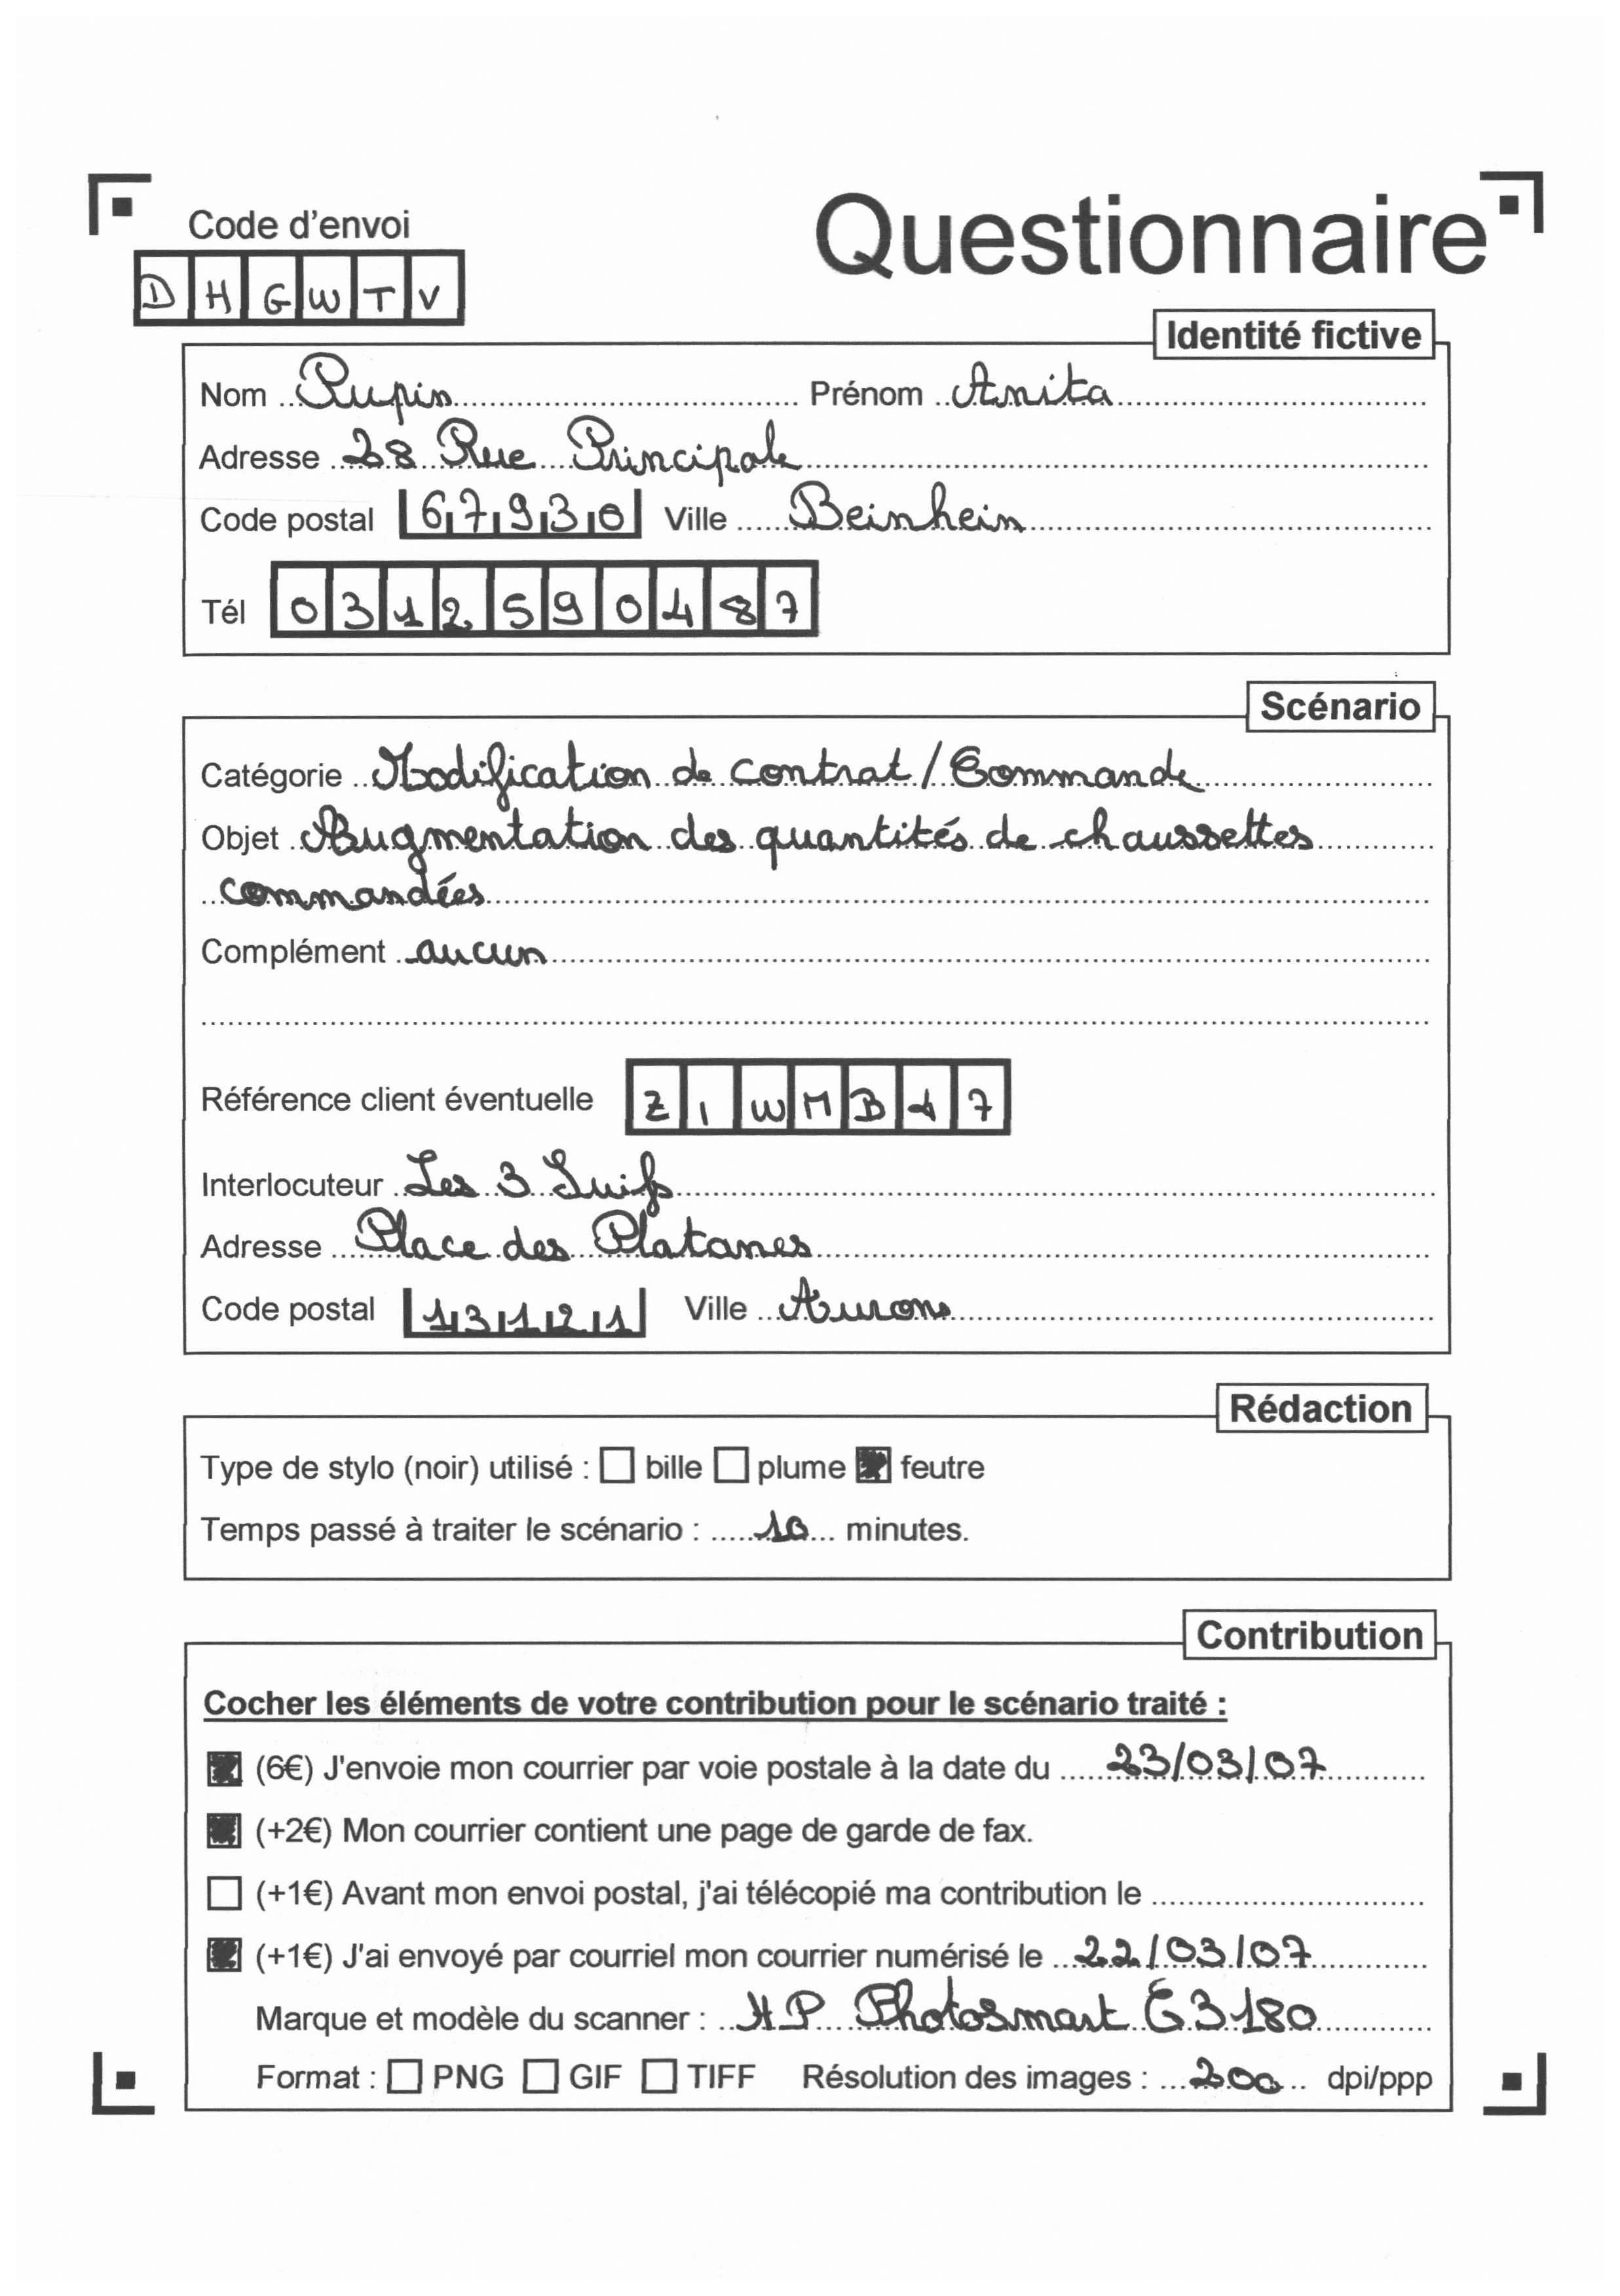 Code d'envoi
Questionnaire
D H G W T V
Identité fictive
Nom Rupin Prénom Anita
Adresse 28 Rue Principale
Code postal 67930 Ville Beinheim
Tél 0312590487
Scénario
Catégorie Modification de contrat / Commande
Objet Augmentation des quantités de chaussettes
commandées
Complément aucun
Référence client éventuelle Z I W M B 1 7
Interlocuteur Les 3 Suifs
Adresse Place des Platanes
Code postal 13121 Ville Aurons
Rédaction
Type de stylo (noir) utilisé : ☐ bille ☐ plume ☒ feutre
Temps passé à traiter le scénario : 10 minutes.
Contribution
Cocher les éléments de votre contribution pour le scénario traité :
☒ (6€) J'envoie mon courrier par voie postale à la date du 23/03/07
☒ (+2€) Mon courrier contient une page de garde de fax.
☐ (+1€) Avant mon envoi postal, j'ai télécopié ma contribution le
☒ (+1€) J'ai envoyé par courriel mon courrier numérisé le 22/03/07
Marque et modèle du scanner : HP Photosmart C3180
Format : ☐ PNG ☐ GIF ☐ TIFF Résolution des images : 200 dpi/ppp